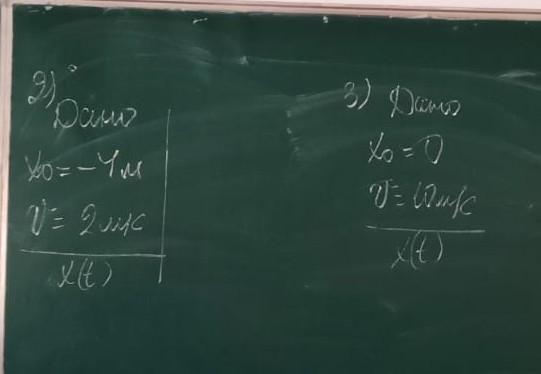 2)
Дано
x₀ = -4м
V = 2м/с
x(t)
3) Дано
x₀ = 0
V = 10м/с
x(t)